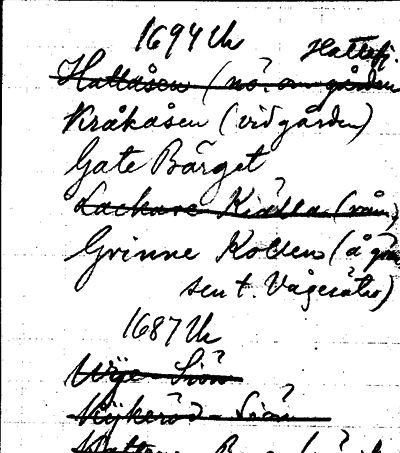 1694 Uh
Hattefj.
Hattåsen (nö. om gården
Kråkåsen (vid gården)
Gate Bärget
Lackare Kiälla (vån
Grinne Kollen (å grän
sen t. Vågeröta)
1687 Uh
Wye Siön
Nykeröd - Siön